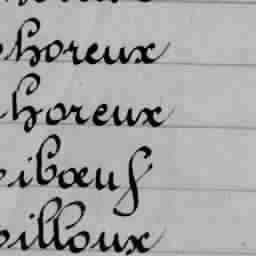 horeux
horeux
ibœuf
illoux